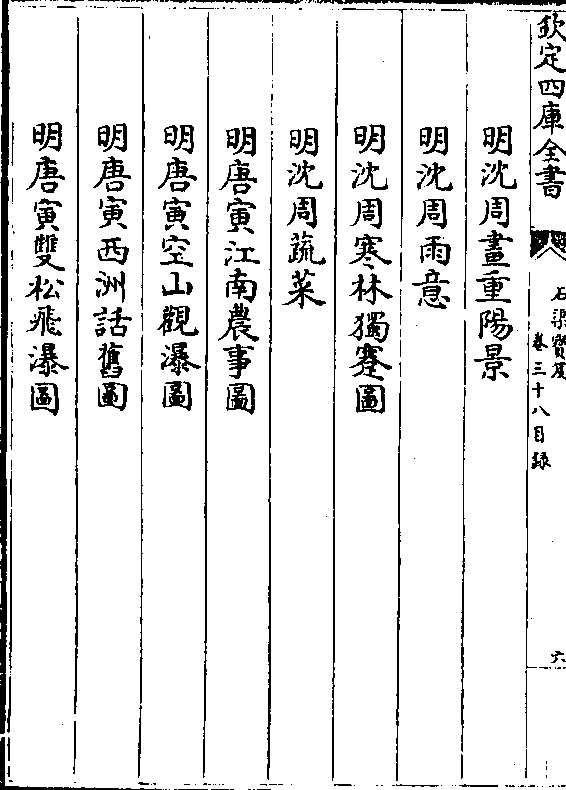 欽定四庫全書
石渠寶笈
卷三十八目録
六
明沈周畫重陽景
明沈周雨意
明沈周寒林獨蹇圖
明沈周蔬菜
明唐寅江南農事圖
明唐寅空山觀瀑圖
明唐寅西洲話舊圖
明唐寅雙松飛瀑圖